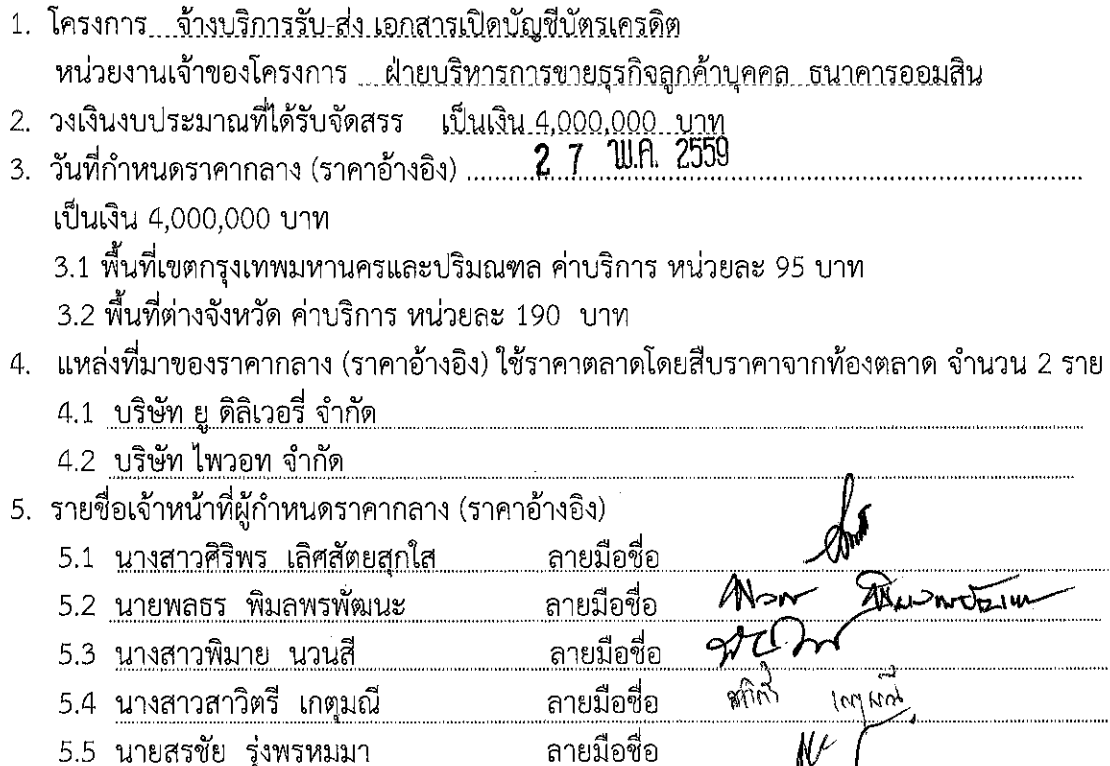 1. โครงการ จ้างบริการรับ-ส่ง เอกสารเปิดบัญชีบัตรเครดิต
หน่วยงานเจ้าของโครงการ ฝ่ายบริหารการขายธุรกิจลูกค้าบุคคล ธนาคารออมสิน
2. วงเงินงบประมาณที่ได้รับจัดสรร เป็นเงิน 4,000,000 บาท
3. วันที่กำหนดราคากลาง (ราคาอ้างอิง) 27 พ.ค. 2559
เป็นเงิน 4,000,000 บาท
3.1 พื้นที่เขตกรุงเทพมหานครและปริมณฑล ค่าบริการ หน่วยละ 95 บาท
3.2 พื้นที่ต่างจังหวัด ค่าบริการ หน่วยละ 190 บาท
4. แหล่งที่มาของราคากลาง (ราคาอ้างอิง) ใช้ราคาตลาดโดยสืบราคาจากท้องตลาด จำนวน 2 ราย
4.1 บริษัท ยู ดิลิเวอรี่ จำกัด
4.2 บริษัท ไพวอท จำกัด
5. รายชื่อเจ้าหน้าที่ผู้กำหนดราคากลาง (ราคาอ้างอิง)
5.1 นางสาวศิริพร เลิศสัตยสุกใส ลายมือชื่อ
5.2 นายพลธร พิมลพรพัฒนะ ลายมือชื่อ
5.3 นางสาวพิมาย นวนสี ลายมือชื่อ
5.4 นางสาวสาวิตรี เกตุมณี ลายมือชื่อ สาวิตรี เกตุมณี
5.5 นายสรชัย รุ่งพรหมมา ลายมือชื่อ